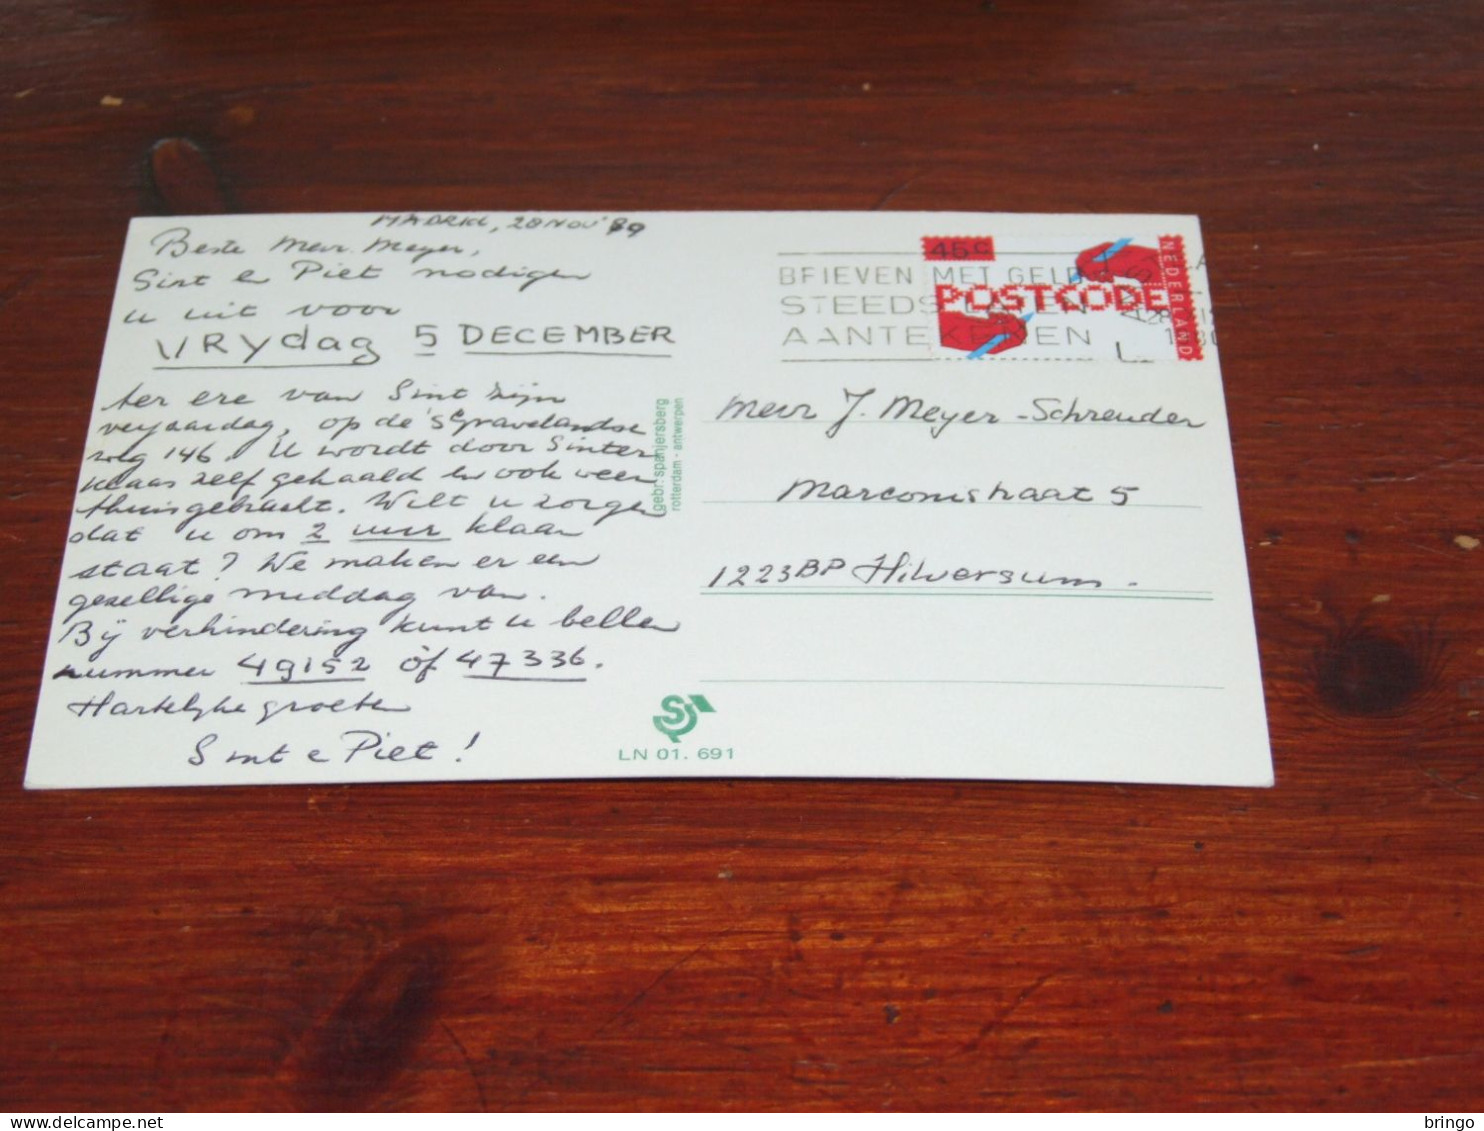 MADRID, 28 NOV '89
Beste Mevr. Meyer,
Sint e Piet nodigen
u uit voor
VRYdag 5 DECEMBER
ter ere van Sint zijn
verjaardag, op de 's Gravelandse
weg 146. U wordt door Sinter
klaas zelf gehaald en ook weer
thuisgebracht. Wilt u zorgen
dat u om 2 uur klaar
staat? We maken er een
gezellige middag van.
Bij verhindering kunt u bellen
nummer 49152 óf 47336.
Hartelijke groeten
Sint e Piet!
gebr. spanjersberg
rotterdam - antwerpen
LN 01. 691
45c
NEDERLAND
POSTCODE
BRIEVEN MET GELD
STEEDS
AANTEKENEN
Mevr J. Meyer-Schreuder
Marconistraat 5
1223BP Hilversum.
bringo
delcampe.net